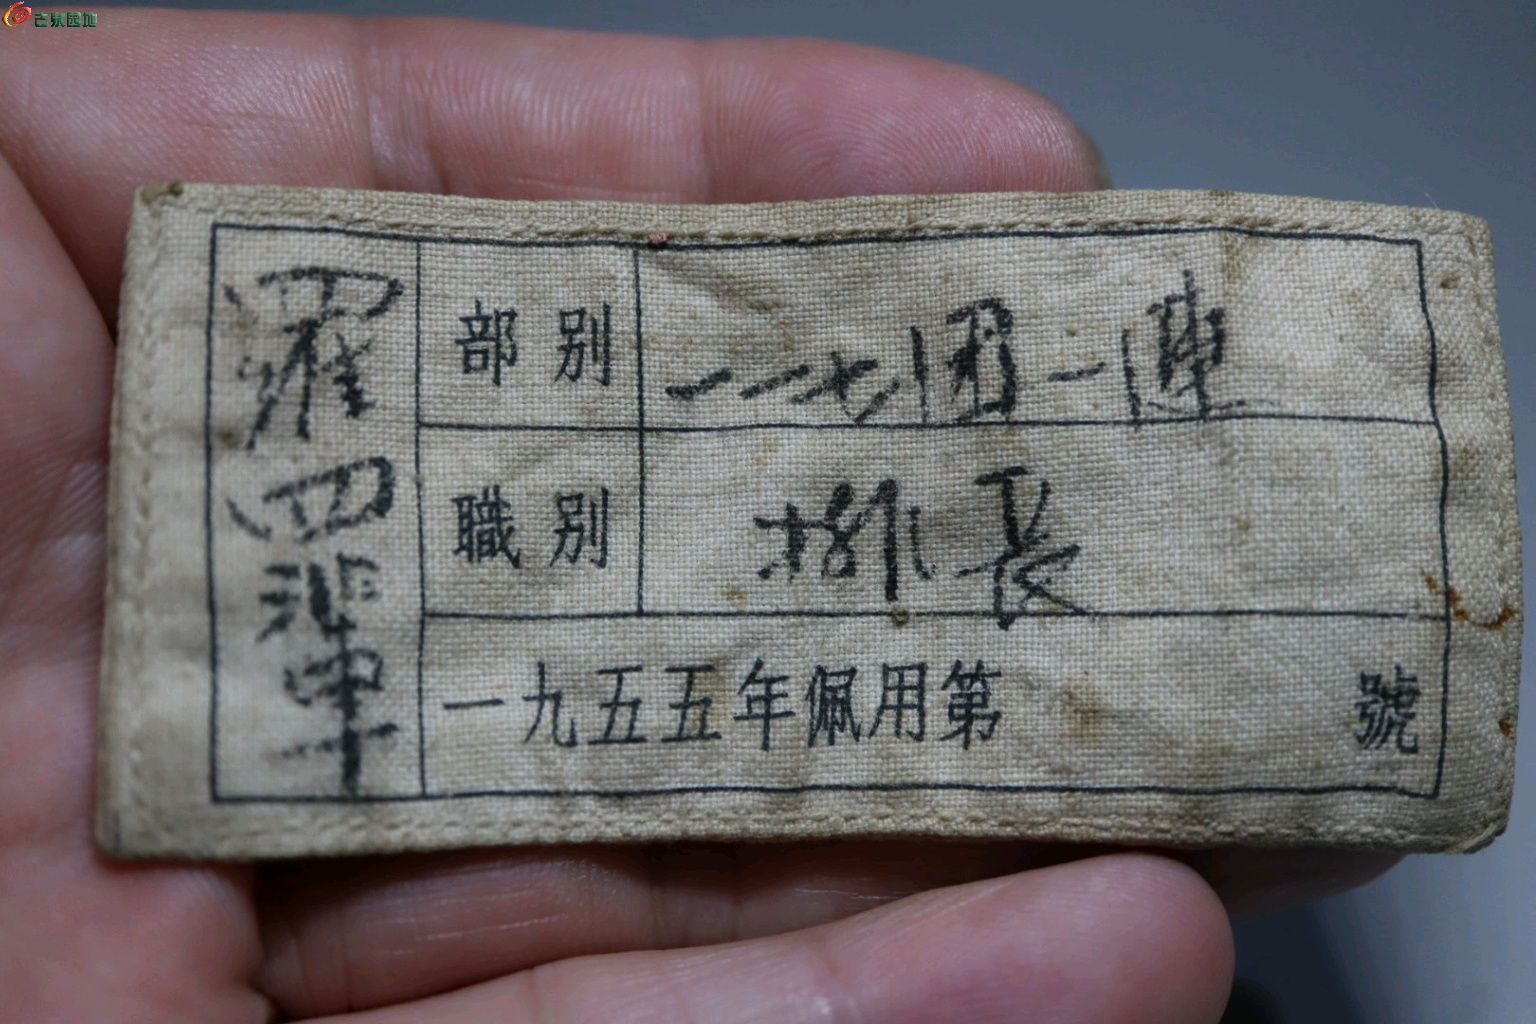 古泉园地
羅四輩
部别 一一七团一連
職别 排長
一九五五年佩用第 號